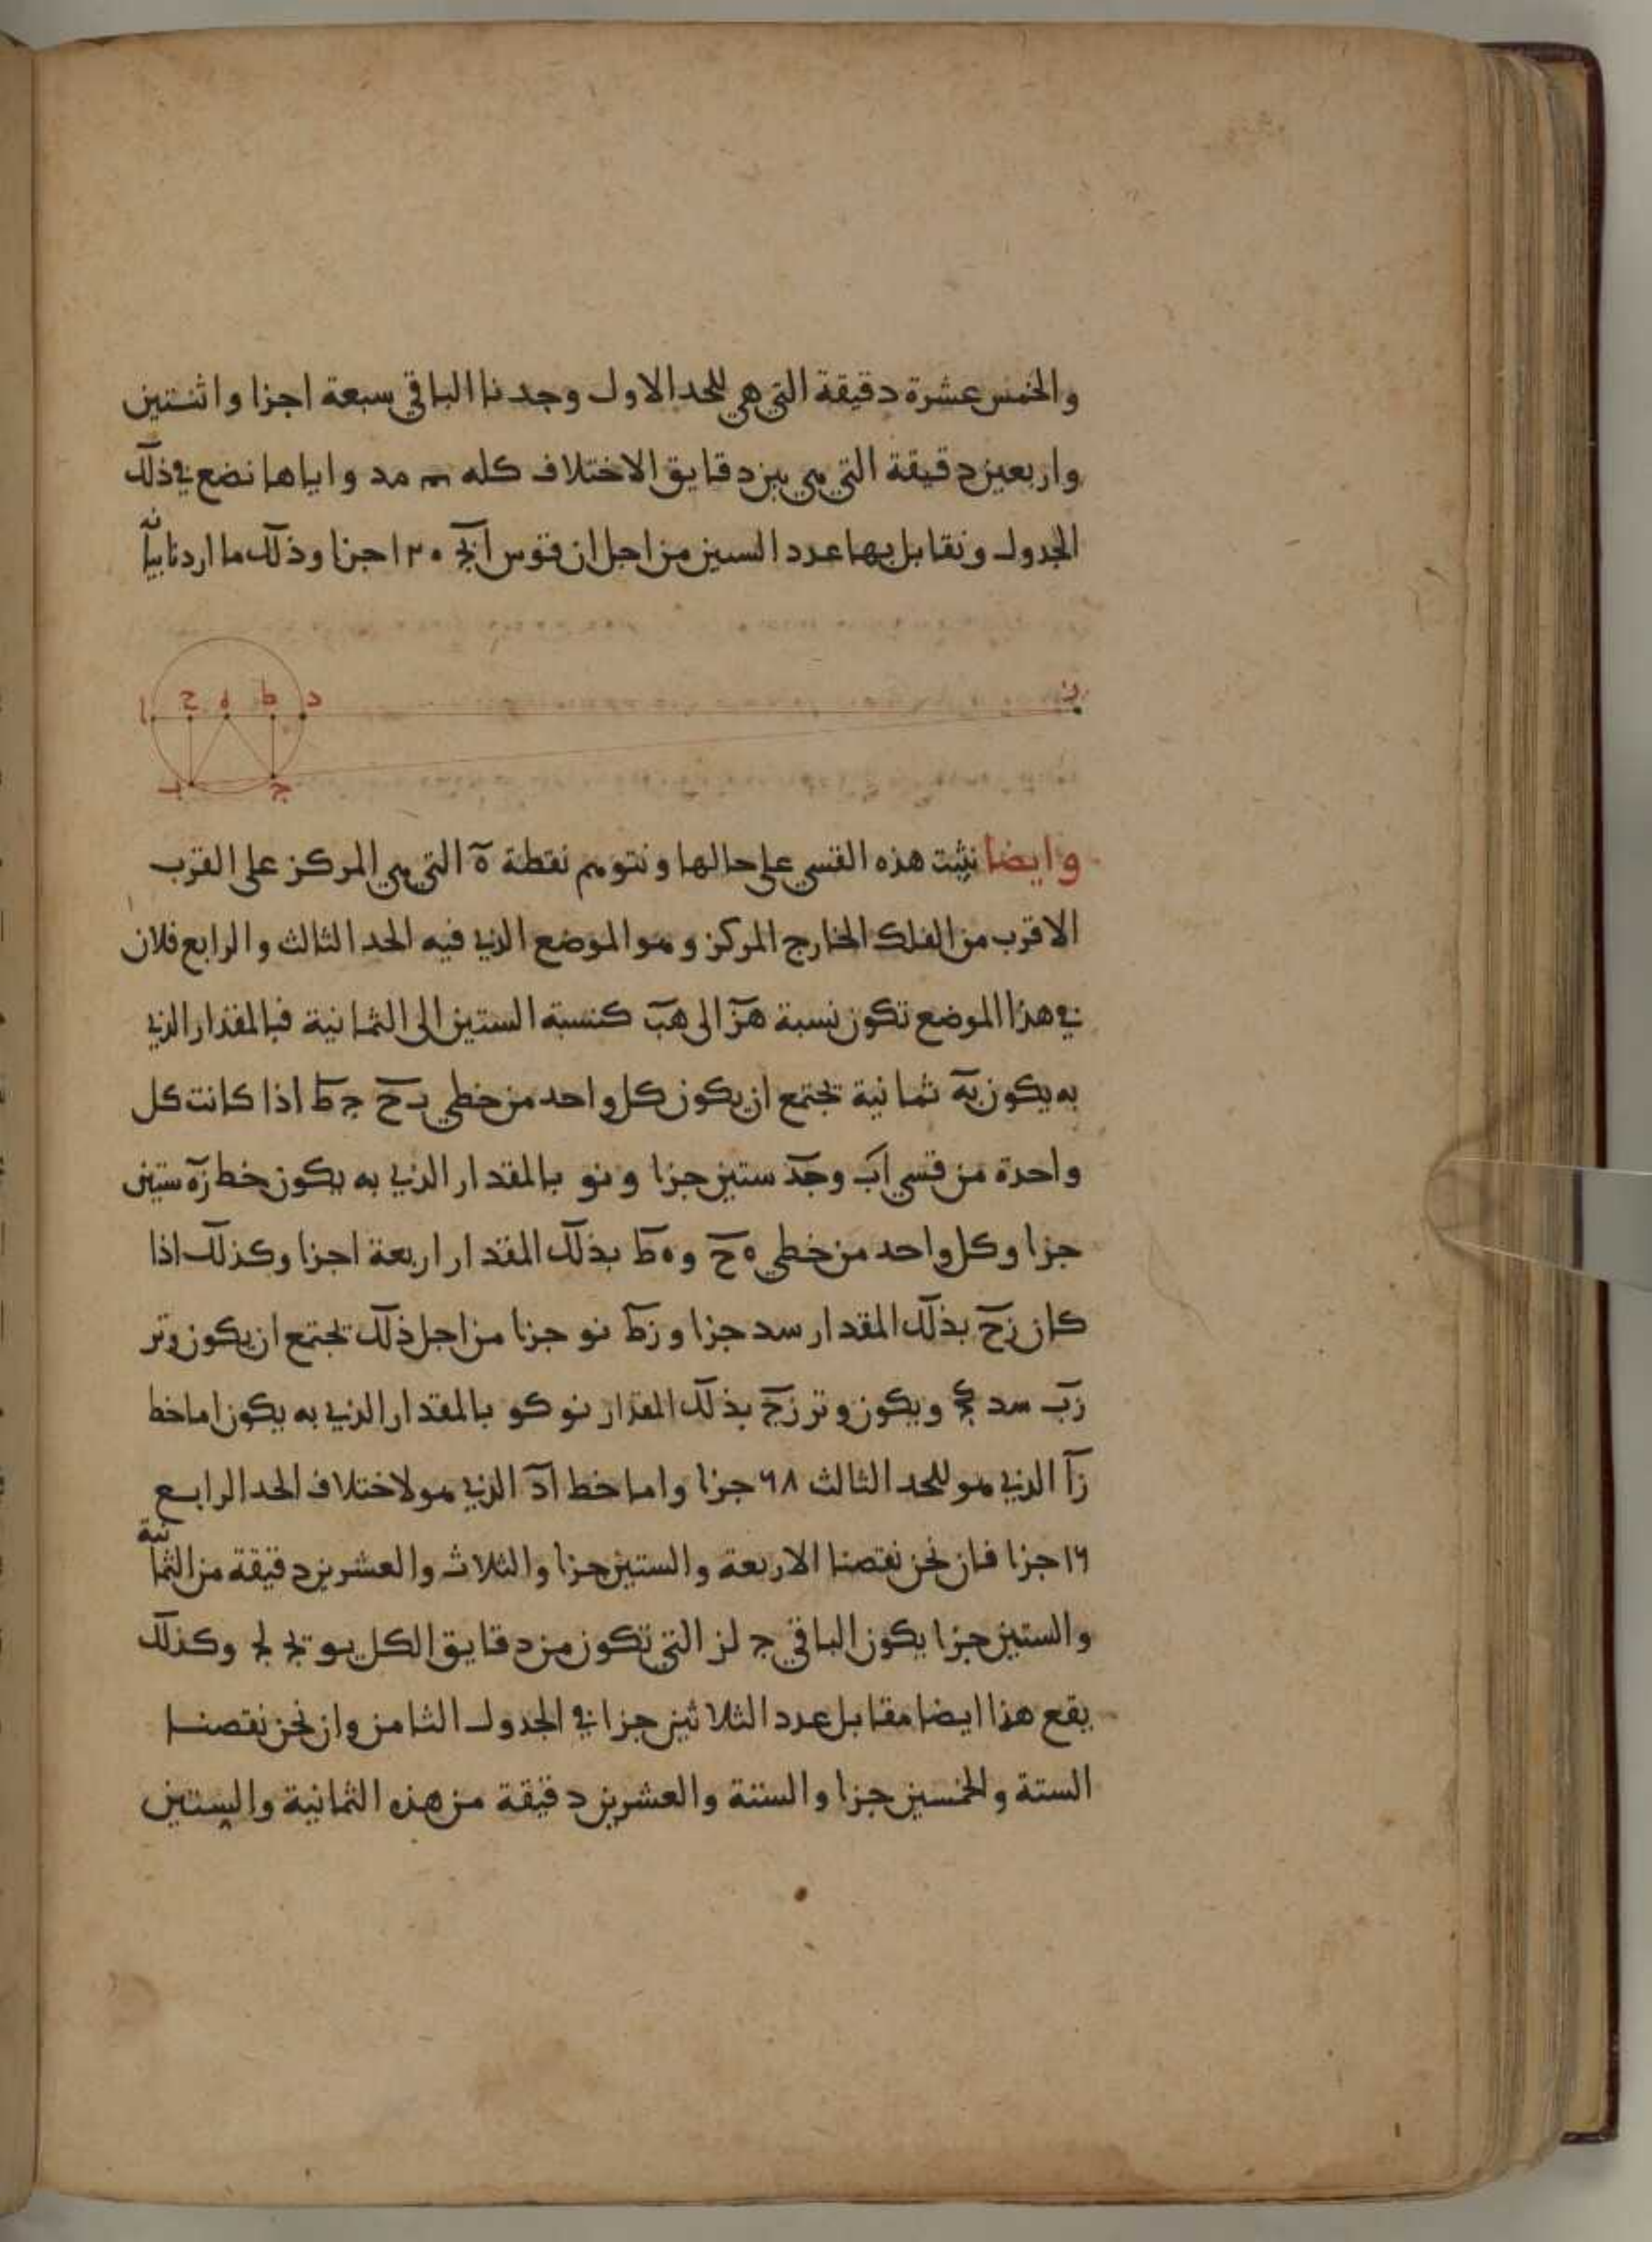 والخمس عشرة دقيقة التي هي للحد الاول وجدنا الباقي سبعة اجزا واثنتين
واربعين دقيقة التي هي من دقايق الاختلاف كله مد واياها نضع في ذلك
الجدول ونقابل بها عدد الستين من اجل ان قوس اج ١٢٠ جزا وذلك ما اردنا بيانه
ا ح ه ط د ز
ب ج
وايضا نثبت هذه القسي على حالها ونتوهم نقطة ه التي هي المركز على القرب
الاقرب من الفلك الخارج المركز وهو الموضع الذي فيه الحد الثالث والرابع فلان
في هذا الموضع تكون نسبة هز الى هب كنسبة الستين الى الثمانية فبالمقدار الذي
به يكون به ثمانية تجتمع ان يكون كل واحد من خطي بح جط اذا كانت كل
واحدة من قسي اب وجد ستين جزا ونو بالمقدار الذي به يكون خط زه ستين
جزا وكل واحد من خطي هح وهط بذلك المقدار اربعة اجزا وكذلك اذا
كان زح بذلك المقدار سد جزا وزط نو جزا من اجل ذلك تجتمع ان يكون وتر
زب سد كج ويكون وتر زج بذلك المقدار نو كو بالمقدار الذي به يكون اما خط
زا الذي هو للحد الثالث ٦٨ جزا واما خط اد الذي هو لاختلاف الحد الرابع
١٦ جزا فان نحن نقصنا الاربعة والستين جزا والثلاث والعشرين دقيقة من الثمانية
والستين جزا يكون الباقي ج لز التي تكون من دقايق الكل يو يج لج وكذلك
يقع هذا ايضا مقابل عدد الثلاثين جزا في الجدول الثامن وان نحن نقصنا
الستة والخمسين جزا والستة والعشرين دقيقة من هذه الثمانية والستين